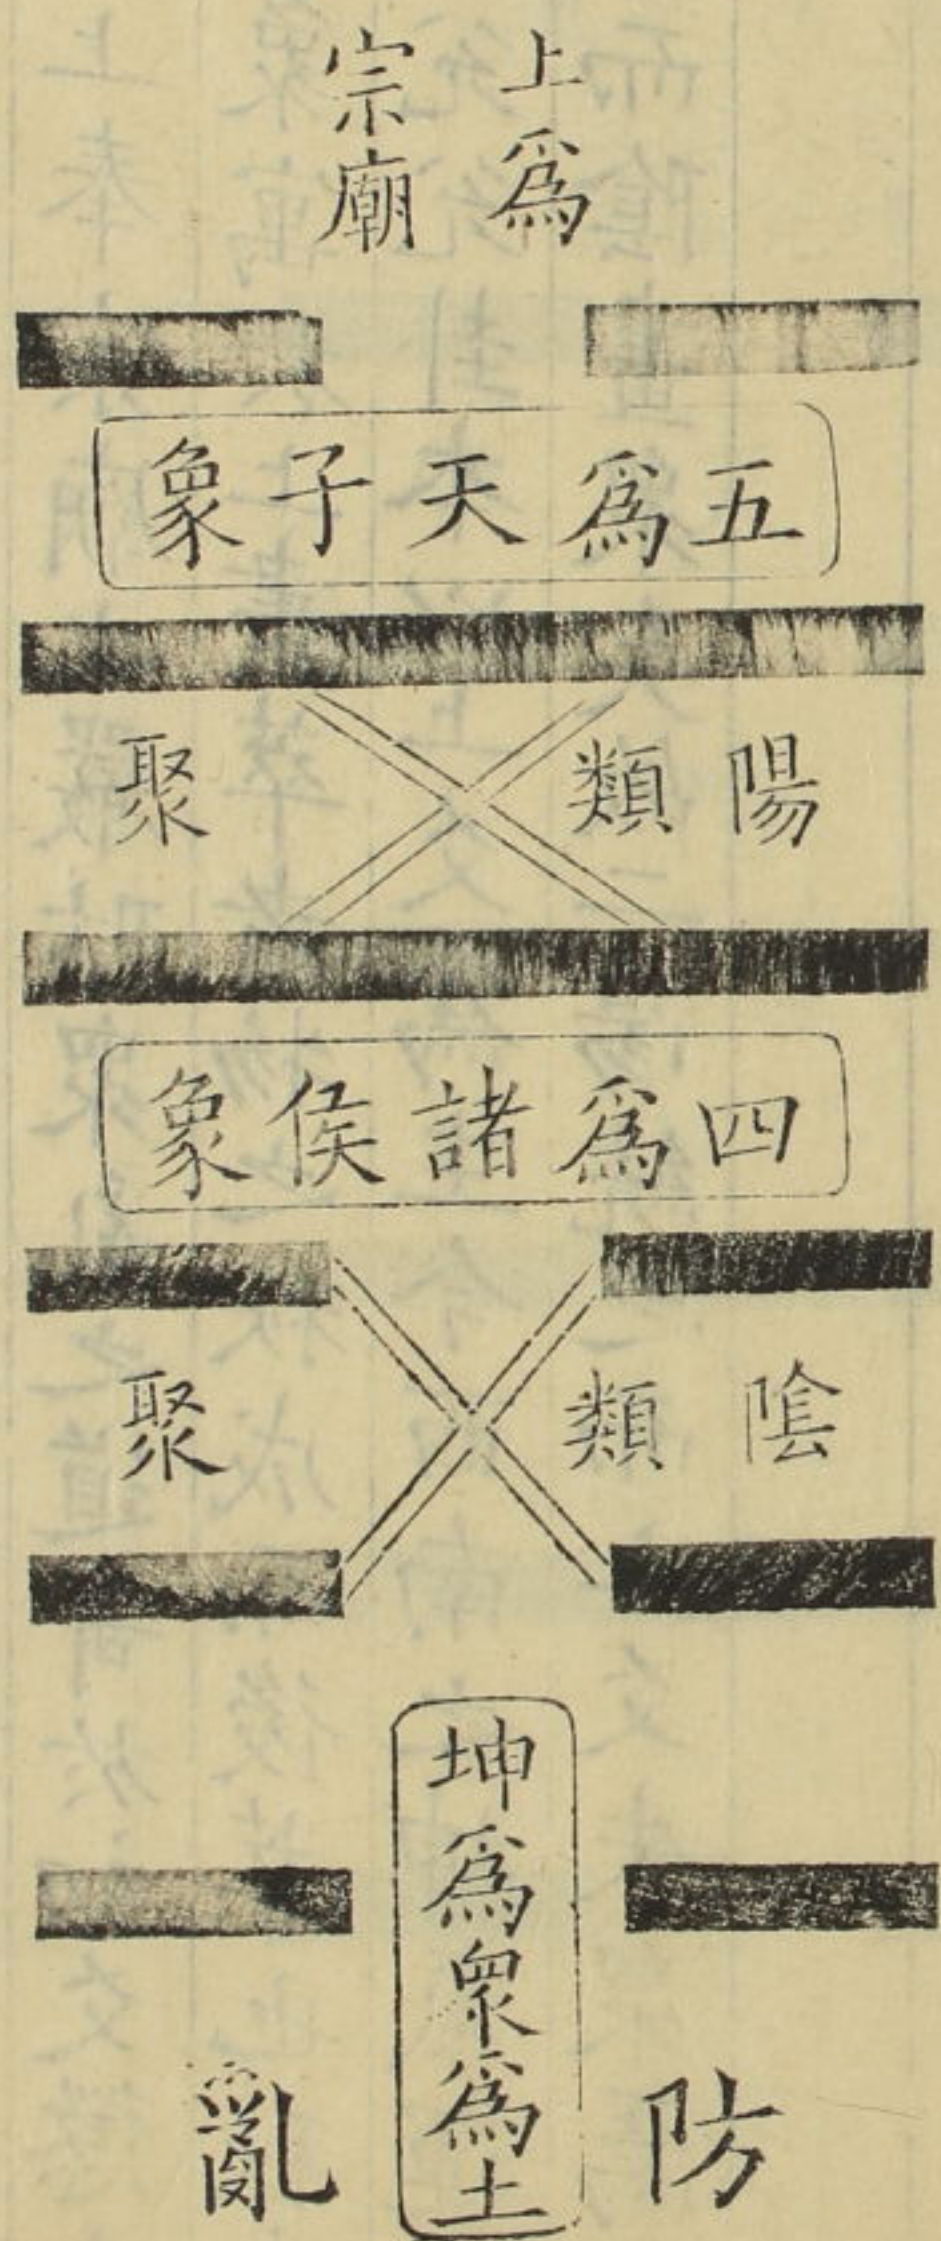 上爲
宗廟
五爲天子象
陽類聚
四爲諸侯象
陰類聚
坤爲眾爲土
防亂